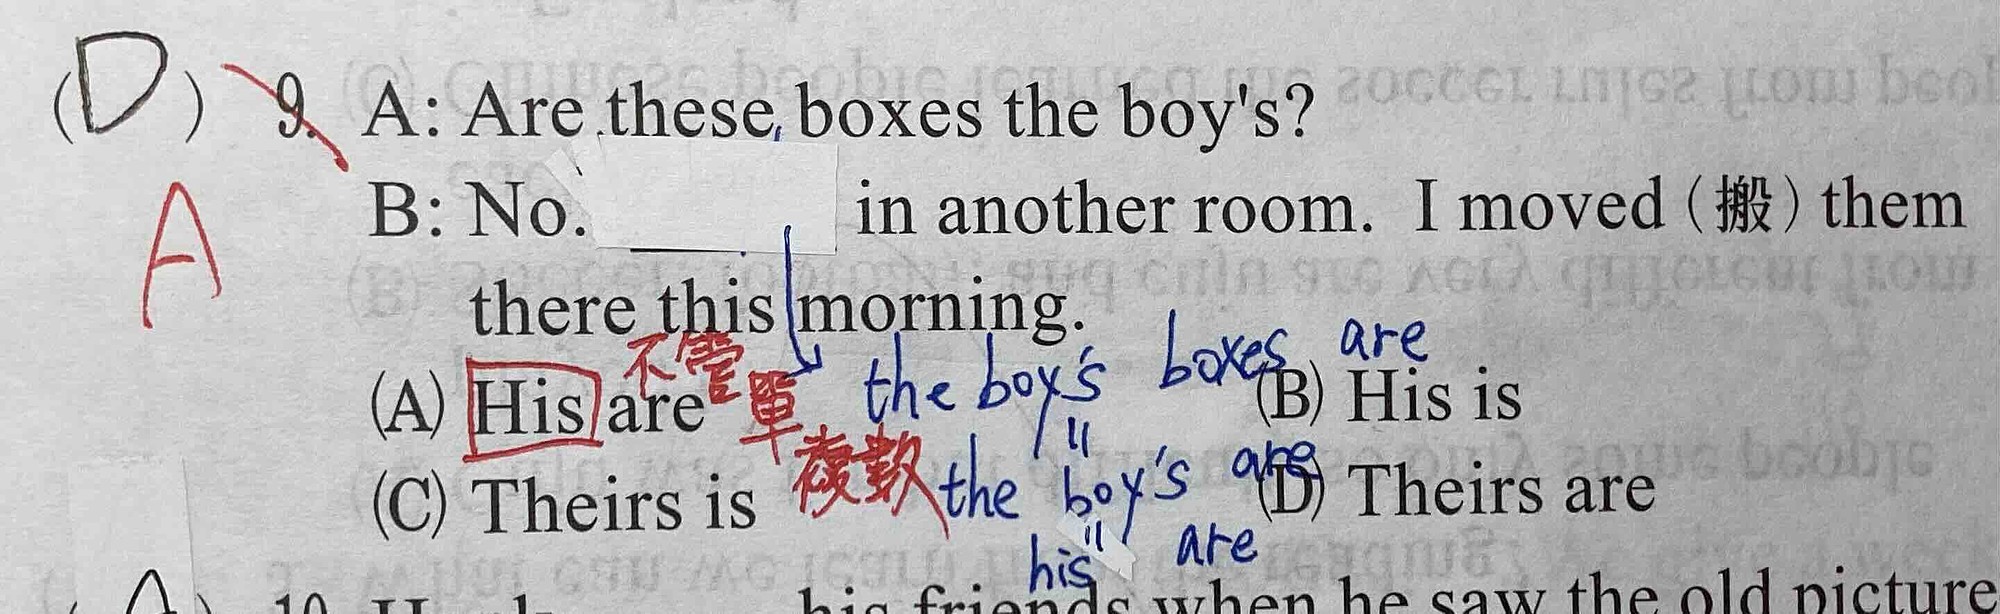 (D) 9. A: Are these boxes the boy's?
A B: No. in another room. I moved (搬) them
there this morning.
(A) His are 不管單 the boy's boxes are (B) His is
(C) Theirs is 複數 the boy's are (D) Theirs are
his are
10. his friends when he saw the old picture